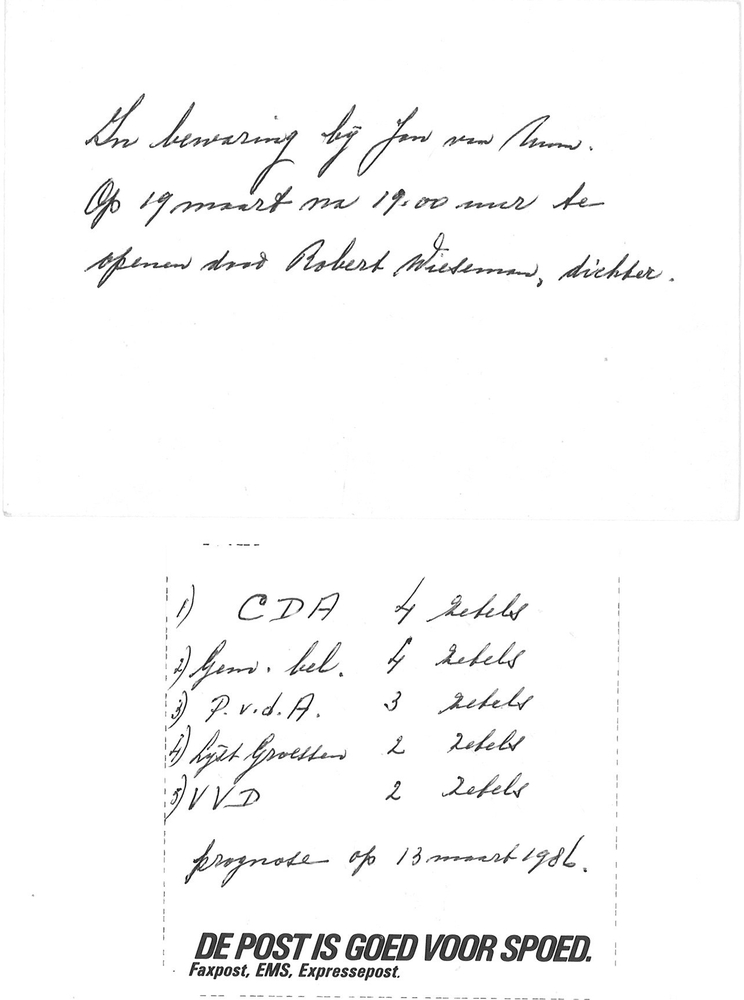 In bewaring bij Jan van
Op 19 maart na 19.00 uur te
openen door Robert Wieseman, dichter.
1) CDA 4 zetels
2) Gem. bel. 4 zetels
3) P.v.d.A. 3 zetels
4) Lijst Groessen 2 zetels
5) VVD 2 zetels
prognose op 13 maart 1986.
DE POST IS GOED VOOR SPOED.
Faxpost, EMS, Expressepost.